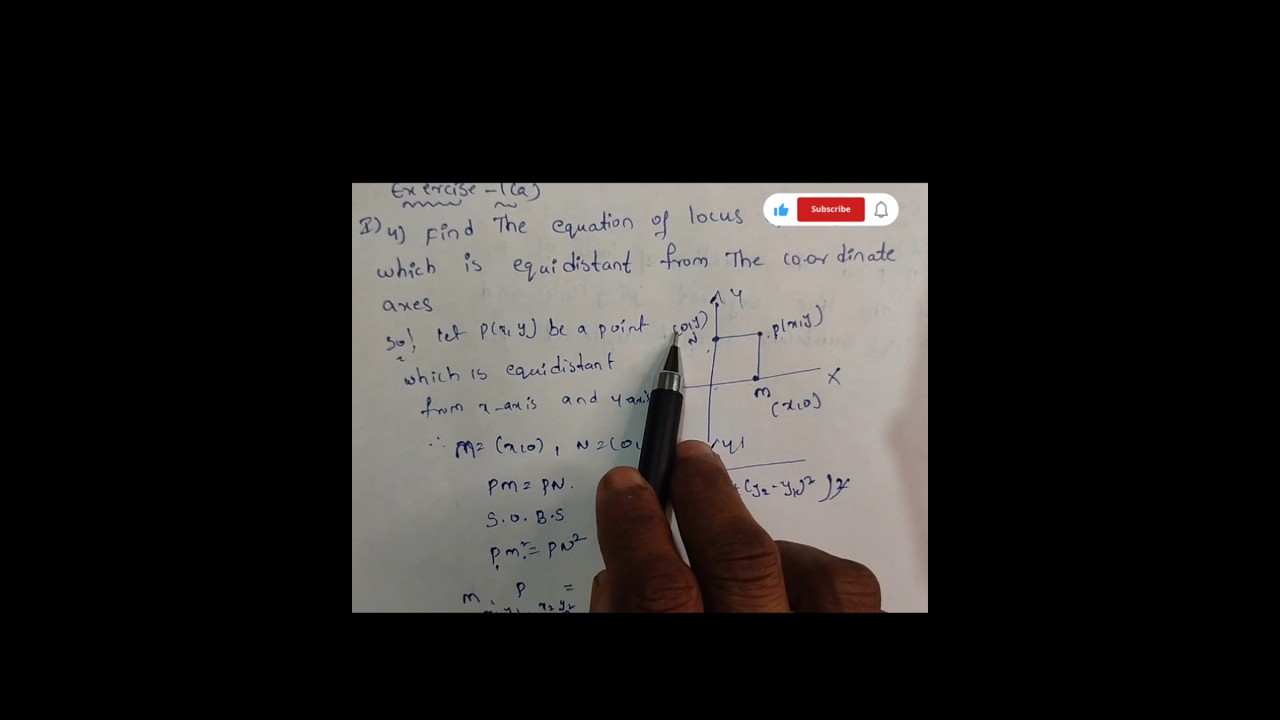 Exercise -1(a)
I) 4) Find The equation of locus
Subscribe
which is equidistant from The co.ordinate
axes
Sol let P(x,y) be a point
which is equidistant
from x-axis and y-axis
∴ M= (x,0), N=(0,
PM = PN.
S.O.B.S
PM² = PN²
M P =
x₂ y₂
Y
(0,y)
N
P(x,y)
X
M
(x,0)
y|
+(y₂-y₁)²